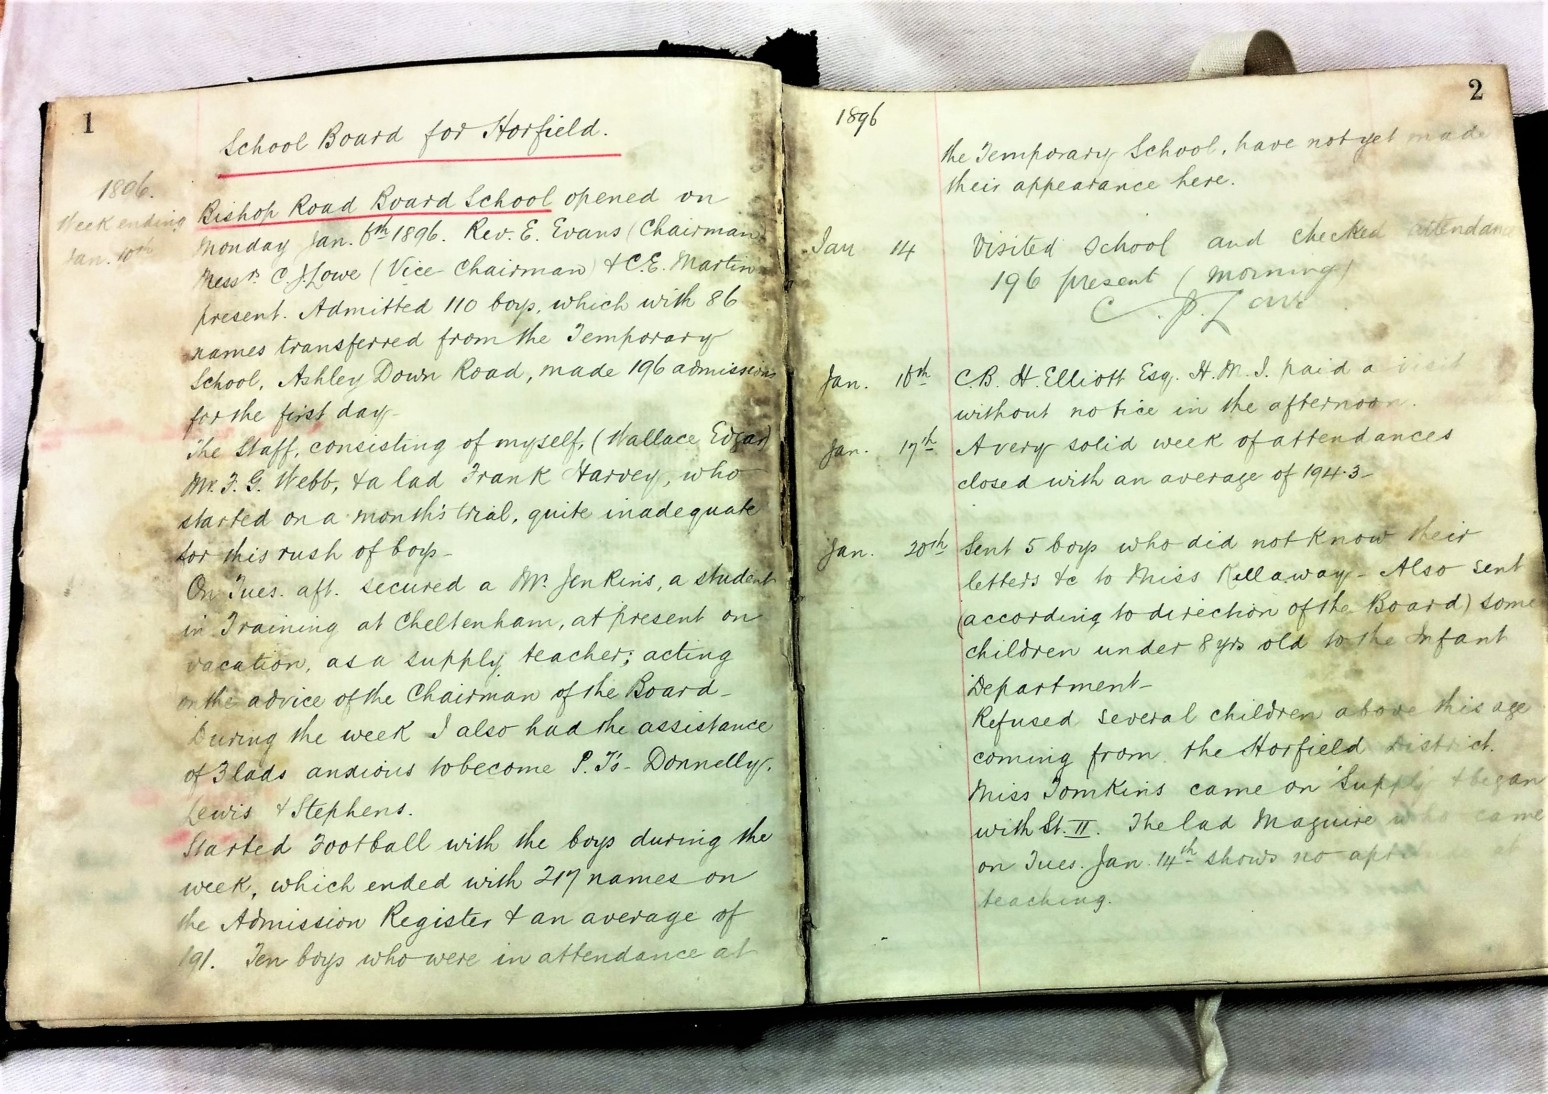 1
School Board for Horfield.
1896.
Week ending
Jan. 10th
Bishop Road Board School opened on
Monday Jan. 6th 1896. Rev. E. Evans (Chairman
Messrs C. J. Lowe (Vice Chairman) & C. E. Martin
present. Admitted 110 boys, which with 86
names transferred from the Temporary
School, Ashley Down Road, made 196 admissions
for the first day—
The Staff, consisting of myself, (Wallace Edgar)
Mr. F. G. Webb, & a lad Frank Harvey, who
started on a month's trial, quite inadequate
for this rush of boys—
On Tues. aft. secured a Mr. Jenkins, a student
in Training at Cheltenham, at present on
vacation, as a supply teacher; acting
on the advice of the Chairman of the Board—
During the week I also had the assistance
of 3 lads anxious to become P.T's— Donnelly,
Lewis & Stephens.
Started Football with the boys during the
week, which ended with 217 names on
the Admission Register & an average of
191. Ten boys who were in attendance at
2
1896
the Temporary School, have not yet made
their appearance here.
Jan 14 Visited School and checked attendance
196 present (Morning)
C. J. Lowe
Jan. 16th C. B. H. Elliott Esq. H.M.I. paid a visit
without notice in the afternoon.
Jan. 17th A very solid week of attendances
closed with an average of 194·3—
Jan. 20th Sent 5 boys who did not know their
letters &c to Miss Kellaway— Also sent
(according to direction of the Board) some
children under 8 yrs old to the Infant
Department—
Refused several children above this age
coming from the Horfield District.
Miss Tomkins came on Supply & began
with St. II. The lad Maguire who came
on Tues. Jan. 14th shows no at
teaching.